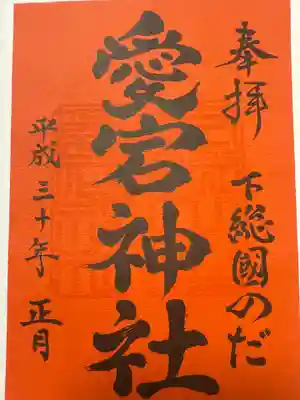 奉拝
下総國のだ
愛宕神社
平成三十年
正月